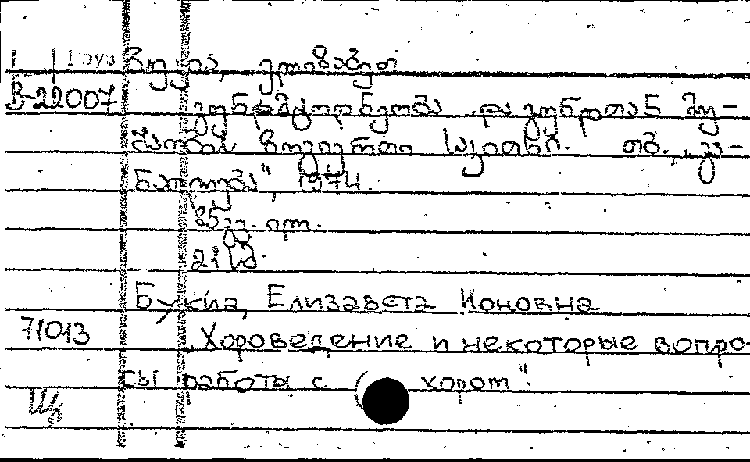 ბუკია, ელიზაბედ
В-22007
გუნდმცოდნეობა და გუნდთან მუ-
შაობის ზოგიერთი საკითხი. თბ., „გა-
ნათლება", 1974.
გვ. ილ.
21 სმ.
Букиа, Елизавета Ионовна
71013
„Хороведение и некоторые вопро-
сы работы с хором".